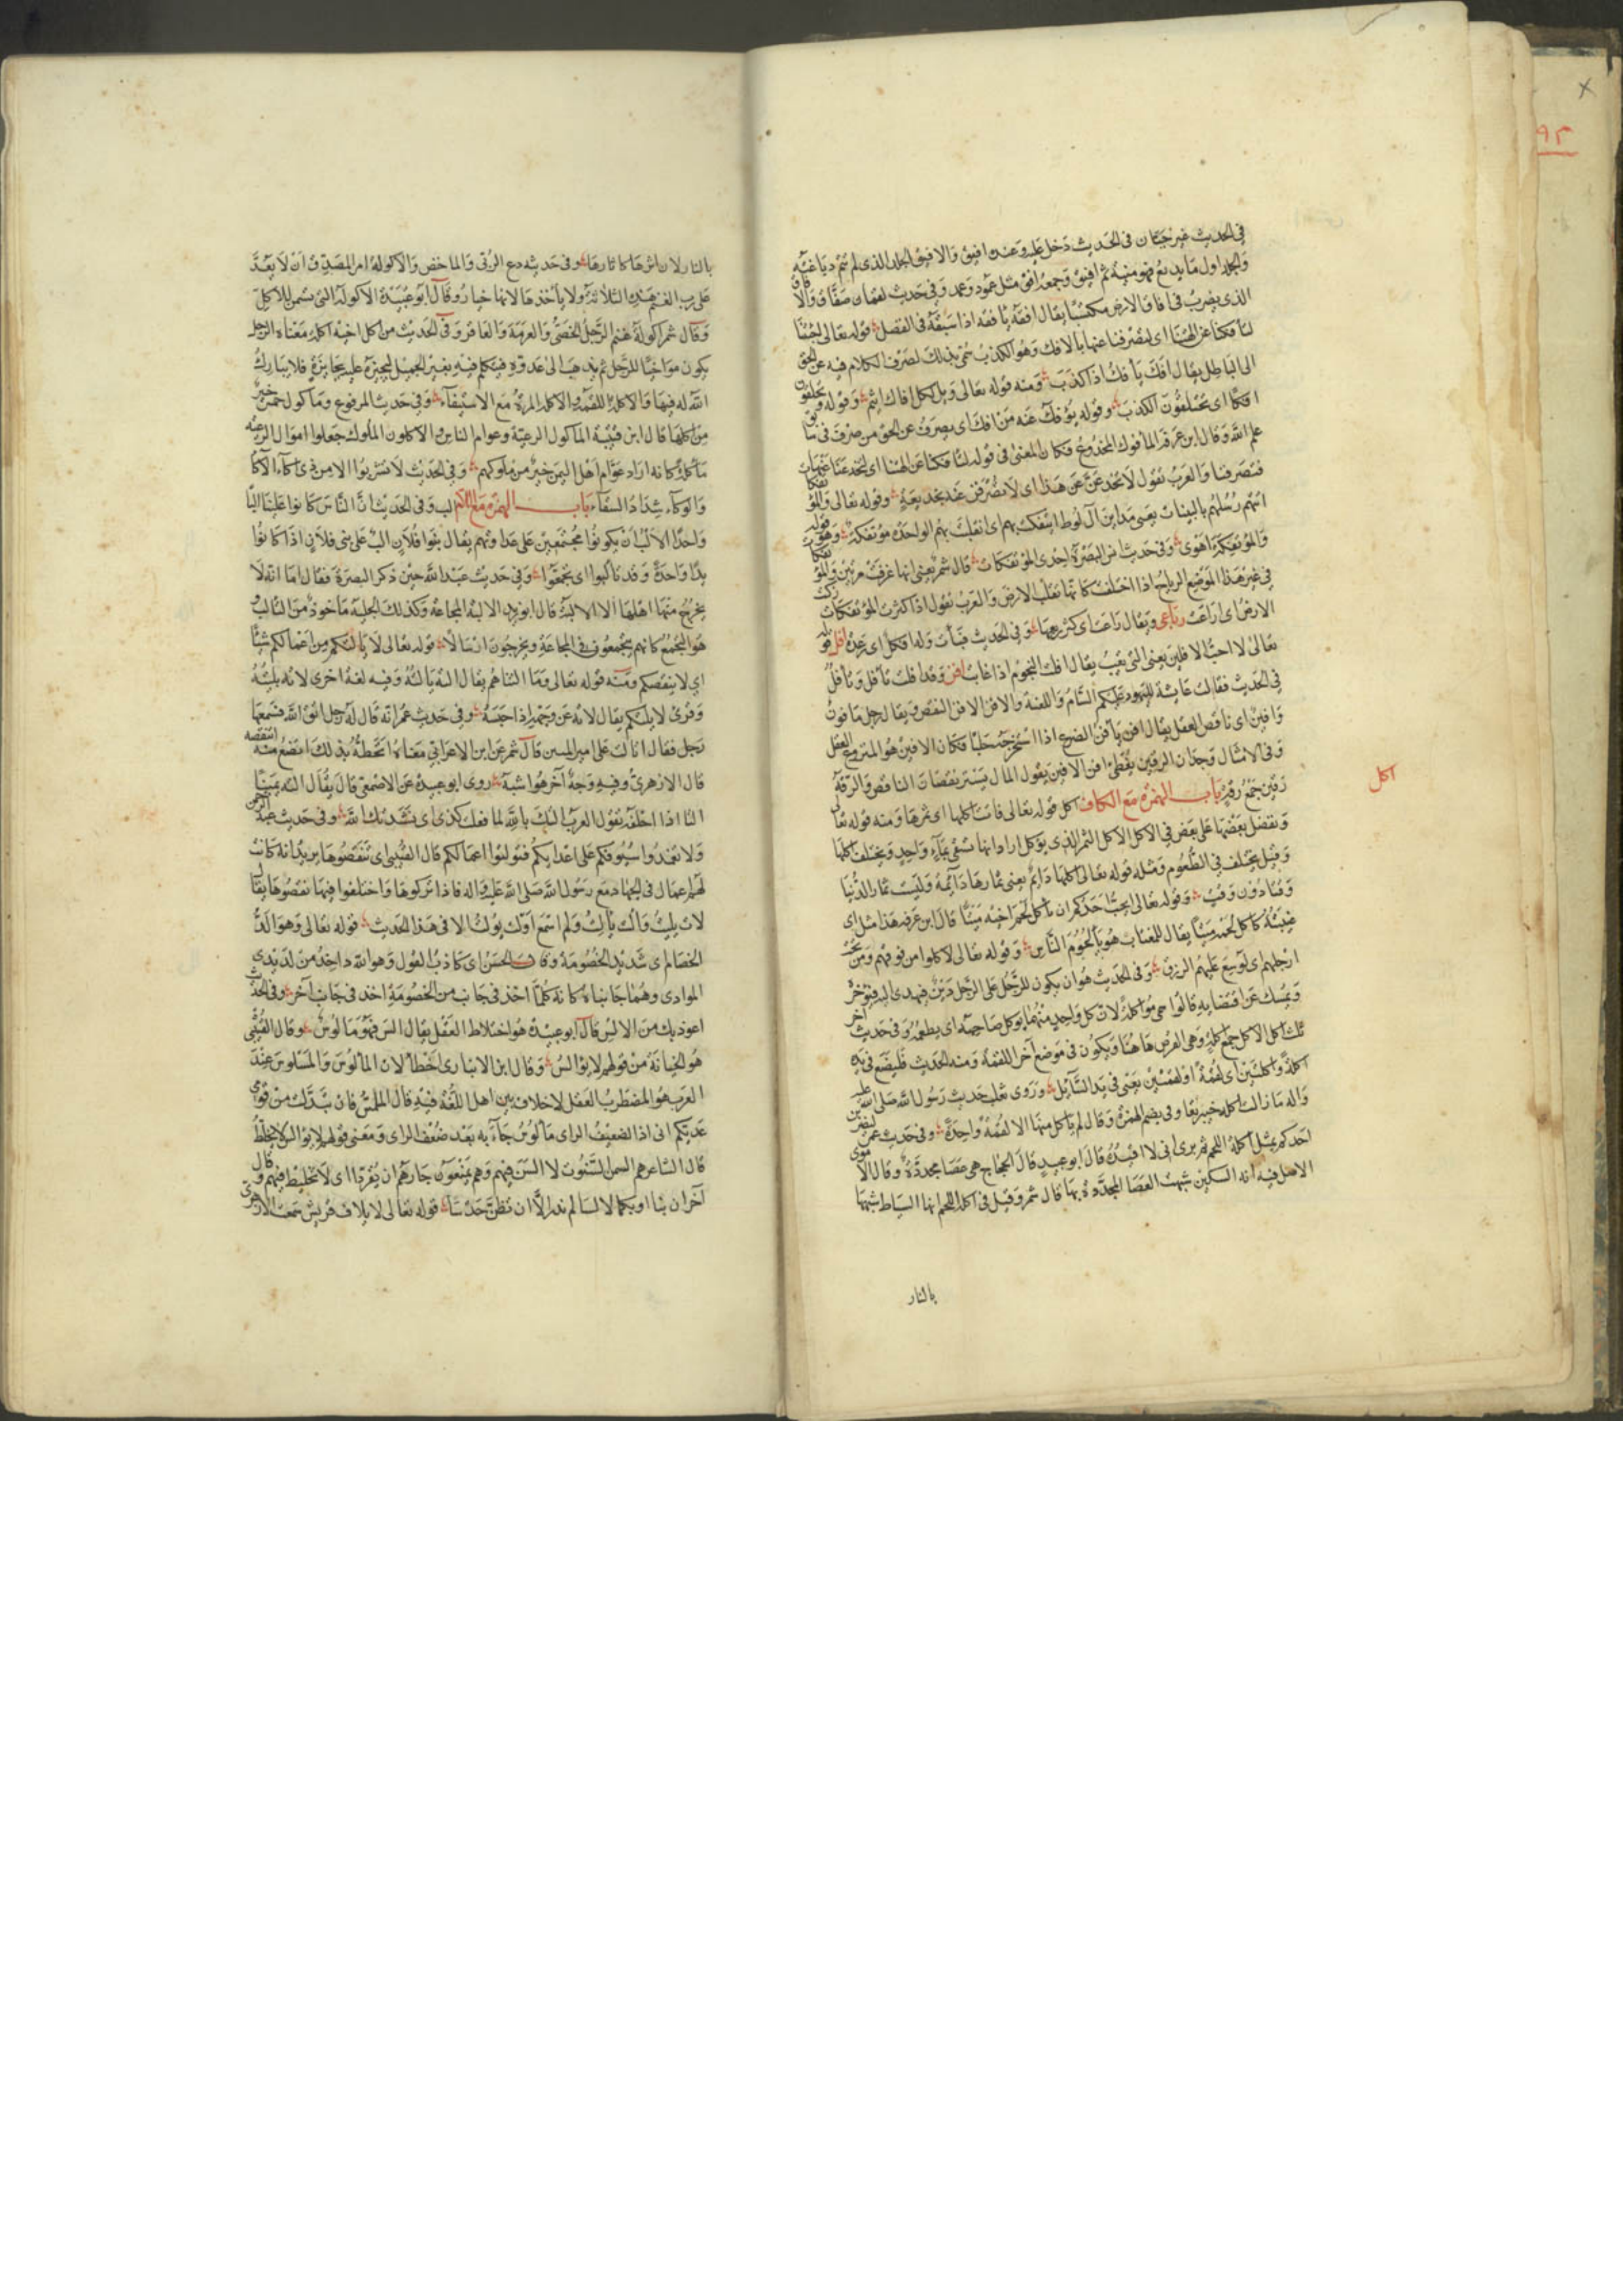 في الحديث غير جبان في الحديث دخل عليه وعنده افيق والافيق الجلد الذي لم يتم دباغته
والجلد اول ما يدبغ فهو منيئة ثم افيق وجمعه افق مثل عمود وعمد وفي حديث لقمان صفاق وافاق
الذي يضرب في افاق الارض مكتسبا يقال افقه يافقه اذا سبقه في الفضل قوله تعالى اجئتنا
لتافكنا عن الهتنا اي لتصرفنا عنها بالافك وهو الكذب سمي بذلك لصرف الكلام فيه عن الحق
الى الباطل يقال افك يأفك اذا كذب ومنه قوله تعالى ويل لكل افاك اثيم وقوله وتخلقون
افكا اي تختلقون الكذب وقوله يؤفك عنه من افك اي يصرف عن الحق من صرف في سابق
علم الله وقال ابن عرفة المأفوك المخدوع فكان المعنى في قوله لتافكنا عن الهتنا اي لتخدعنا عنها
فتصرفنا والعرب تقول لا تخدعن عن هذا اي لا تصرفن عنه بخديعة وقوله تعالى والمؤتفكات
اتتهم رسلهم بالبينات يعني مداين آل لوط ائتفكت بهم اي انقلبت بهم الواحدة مؤتفكة وهو قوله
والمؤتفكة اهوى وفي حديث انس البصرة احدى المؤتفكات قال شمر يعني انها غرقت مرتين والمؤتفكات
في غير هذا الموضع الرياح اذا اختلفت كانها تقلب الارض والعرب تقول اذا كثرت المؤتفكات زكت
الارض اي راعت رباعي ويقال راعت اي كثر ريعها وفي الحديث فبات وله افكل اي رعدة افل قوله
تعالى لا احب الافلين يعني التي تغيب يقال افلت النجوم اذا غابت افن وقد افلت تأفل وتأفل
في الحديث فقالت عايشة لليهود عليكم السام واللعنة والافن الافن النقص يقال رجل مافون
وافين اي ناقص العقل يقال افن يأفن الضرع اذا استخرجت حلبا فكان الافين هو المنزوع العقل
وفي الامثال وجدان الرقين يغطي افن الافين يقول المال يستر نقصان الناقص والرقة
رقين جمع رقة باب الهمزة مع الكاف اكل قوله تعالى فاتت اكلها اي ثمرها ومنه قوله تعالى
ونفضل بعضها على بعض في الاكل الاكل الثمر الذي يؤكل اراد انها تسقى بماء واحد ويختلف اكلها
وقيل يختلف في الطعوم ومثله قوله تعالى اكلها دايم يعني ثمارها دايمة وليست ثمار الدنيا
وقتا دون وقت وقوله تعالى ايحب احدكم ان يأكل لحم اخيه ميتا قال ابن عرفه هذا مثل اي
غيبته كاكل لحمه ميتا يقال للمغتاب هو يأكل لحوم الناس وقوله تعالى لاكلوا من فوقهم ومن تحت
ارجلهم اي لوسع عليهم الرزق وفي الحديث هو ان يكون للرجل على الرجل دين فيهدى اليه فيؤخره
ويمسك عن اقتضايه قالوا سمي مؤاكلة لان كل واحد منهما يؤكل صاحبه اي يطعمه وفي حديث آخر
ثلث اكل الاكل جمع اكلة وهي القرص هاهنا ويكون في موضع آخر اللقمة ومنه الحديث فليضع في يده
اكلة او اكلتين اي لقمة او لقمتين يعني في يد السايل وروى ثعلب حديث رسول الله صلى الله عليه
واله ما زالت اكلة خيبر بقا وفي بضم الهمزة وقال لم يأكل منها الا لقمة واحدة وفي حديث عمر ليضربن
احدكم بمثل اكلة اللحم ثم يرى اني لا اقيده قال ابو عبيد قال الحجاج هي عصا محددة وقال الاموي
الاصل فيه انه السكين شبهت العصا المحددة بها قال شمر وقيل في اكلة اللحم انها السياط شبهها
بالنار
اكل
٩٣
بالنار لان اثرها كاثارها وفي حديثه دع الربى والماخض والاكولة امر المصدق ان لا يعد
على رب الغنم هذه الثلاثة ولا يأخذها لانها خيار وقال ابو عبيدة الاكولة التي تسمن للاكل
وقال شمر اكولة غنم الرجل الخصي والهرمة والعاقر وفي الحديث من اكل اخيه اكلة معناه الرجل
يكون مواخيا للرجل ثم يذهب الى عدوه فيتكلم فيه بغير الجميل ليجيزه عليه بجايزة فلا يبارك
الله له فيها والاكلة اللقمة والاكلة المرة مع الاستيفاء وفي حديث المرفوع ومأكول حمير خير
من اكلها قال ابن قتيبة المأكول الرعية وعوام الناس والاكلون الملوك جعلوا اموال الرعية
مأكلة كانه اراد عوام اهل اليمن خير من ملوكهم وفي الحديث لا تشربوا الا من ذي اكاء الاكا
والوكاء شداد السقاء باب الهمزة مع اللام الب وفي الحديث ان الناس كانوا علينا البا
واحدا الالب ان يكونوا مجتمعين على عداوتهم يقال بنوا فلان الب على بني فلان اذا كانوا
يدا واحدة وقد تألبوا اي تجمعوا وفي حديث عبد الله حين ذكر البصرة فقال اما انه لا
يخرج منها اهلها الا الالبة قال ابو زيد الالبة المجاعة وكذلك الجلبة مأخوذ من التالب
هو التجمع كانهم يجتمعون في المجاعة ويخرجون ارسالا قوله تعالى لا يالتكم من اعمالكم شيئا
اي لا ينقصكم ومنه قوله تعالى وما التناهم يقال الته يالته وفيه لغة اخرى لاته يليته
وقرئ لا يلتكم يقال لاته عن وجهه اذا حبسه وفي حديث عمر انه قال له رجل اتق الله فسمعها
رجل فقال اتالت على امير المؤمنين قال شمر عن ابن الاعرابي معناه اتحطه بذلك اتضع منه اتنقصه
قال الازهري وفيه وجه آخر هو اشبه روى ابو عبيدة عن الاصمعي قال يقال الته يمينا
التا اذا احلفه تقول العرب التك بالله لما فعلت كذي اي نشدتك الله وفي حديث عبد الرحمن
ولا تغمدوا سيوفكم على اعدايكم فتولتوا اعمالكم قال القتيبي اي تنقصوها يريد انه كانت
لهم اعمال في الجهاد مع رسول الله صلى الله عليه واله فاذا تركوها واختلفوا فيها نقصوها يقال
لات يليت والت يألت ولم اسمع اولت يولت الا في هذا الحديث قوله تعالى وهو الد
الخصام اي شديد الخصومة وقال الحسن اي كاذب القول وهو الد داخذ من لديدي
الوادي وهما جانباه كانه كلما اخذ في جانب من الخصومة اخذ في جانب آخر وفي الحديث
اعوذ بك من الالس قال ابو عبيدة هو اختلاط العقل يقال الس فهو مألوس وقال القتيبي
هو الخيانة من قولهم لا يؤالس وقال ابن الانباري اخطأ لان المألوس والمسلوس عند
العرب هو المضطرب العقل لا خلاف بين اهل اللغة فيه قال الملمس فان تبدلت من قومي
عديكم اني اذا لضعيف الراي مألوس جاء به بعد ضعف الراي ومعنى قولهم لا يؤالس لا يخلط
قال الشاعر هم السمن بالسنوت لا الس فيهم وهم يمنعون جارهم ان يقردا اي لا تخليط فيهم وقال
آخر ان بنا او بكما لالسا لم ندر الا ان نظن حدسا قوله تعالى لايلاف قريش سمعت الازهري